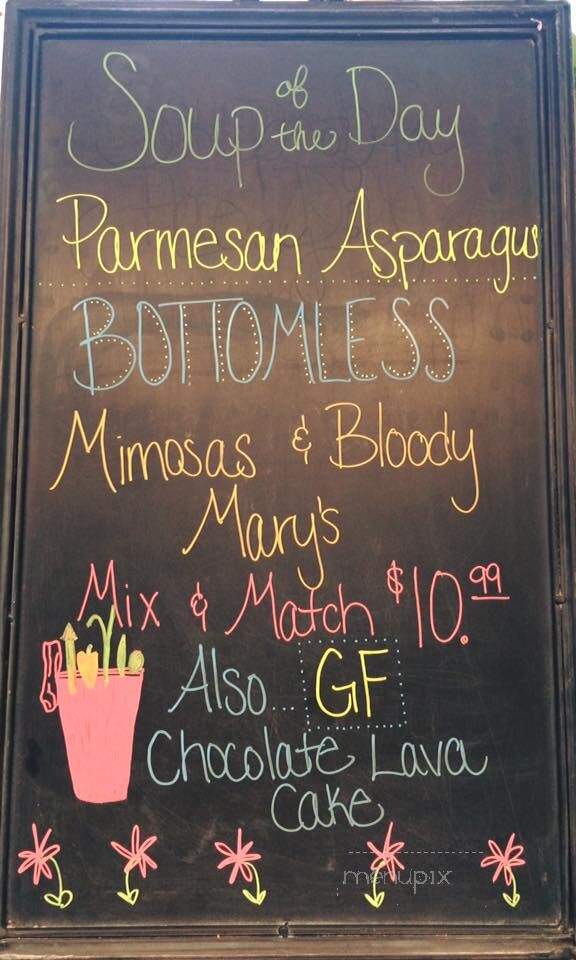 Soup of the Day
Parmesan Asparagus
BOTTOMLESS
Mimosas & Bloody
Mary's
Mix & Match $10.99
Also... GF
Chocolate Lava
Cake
menupix